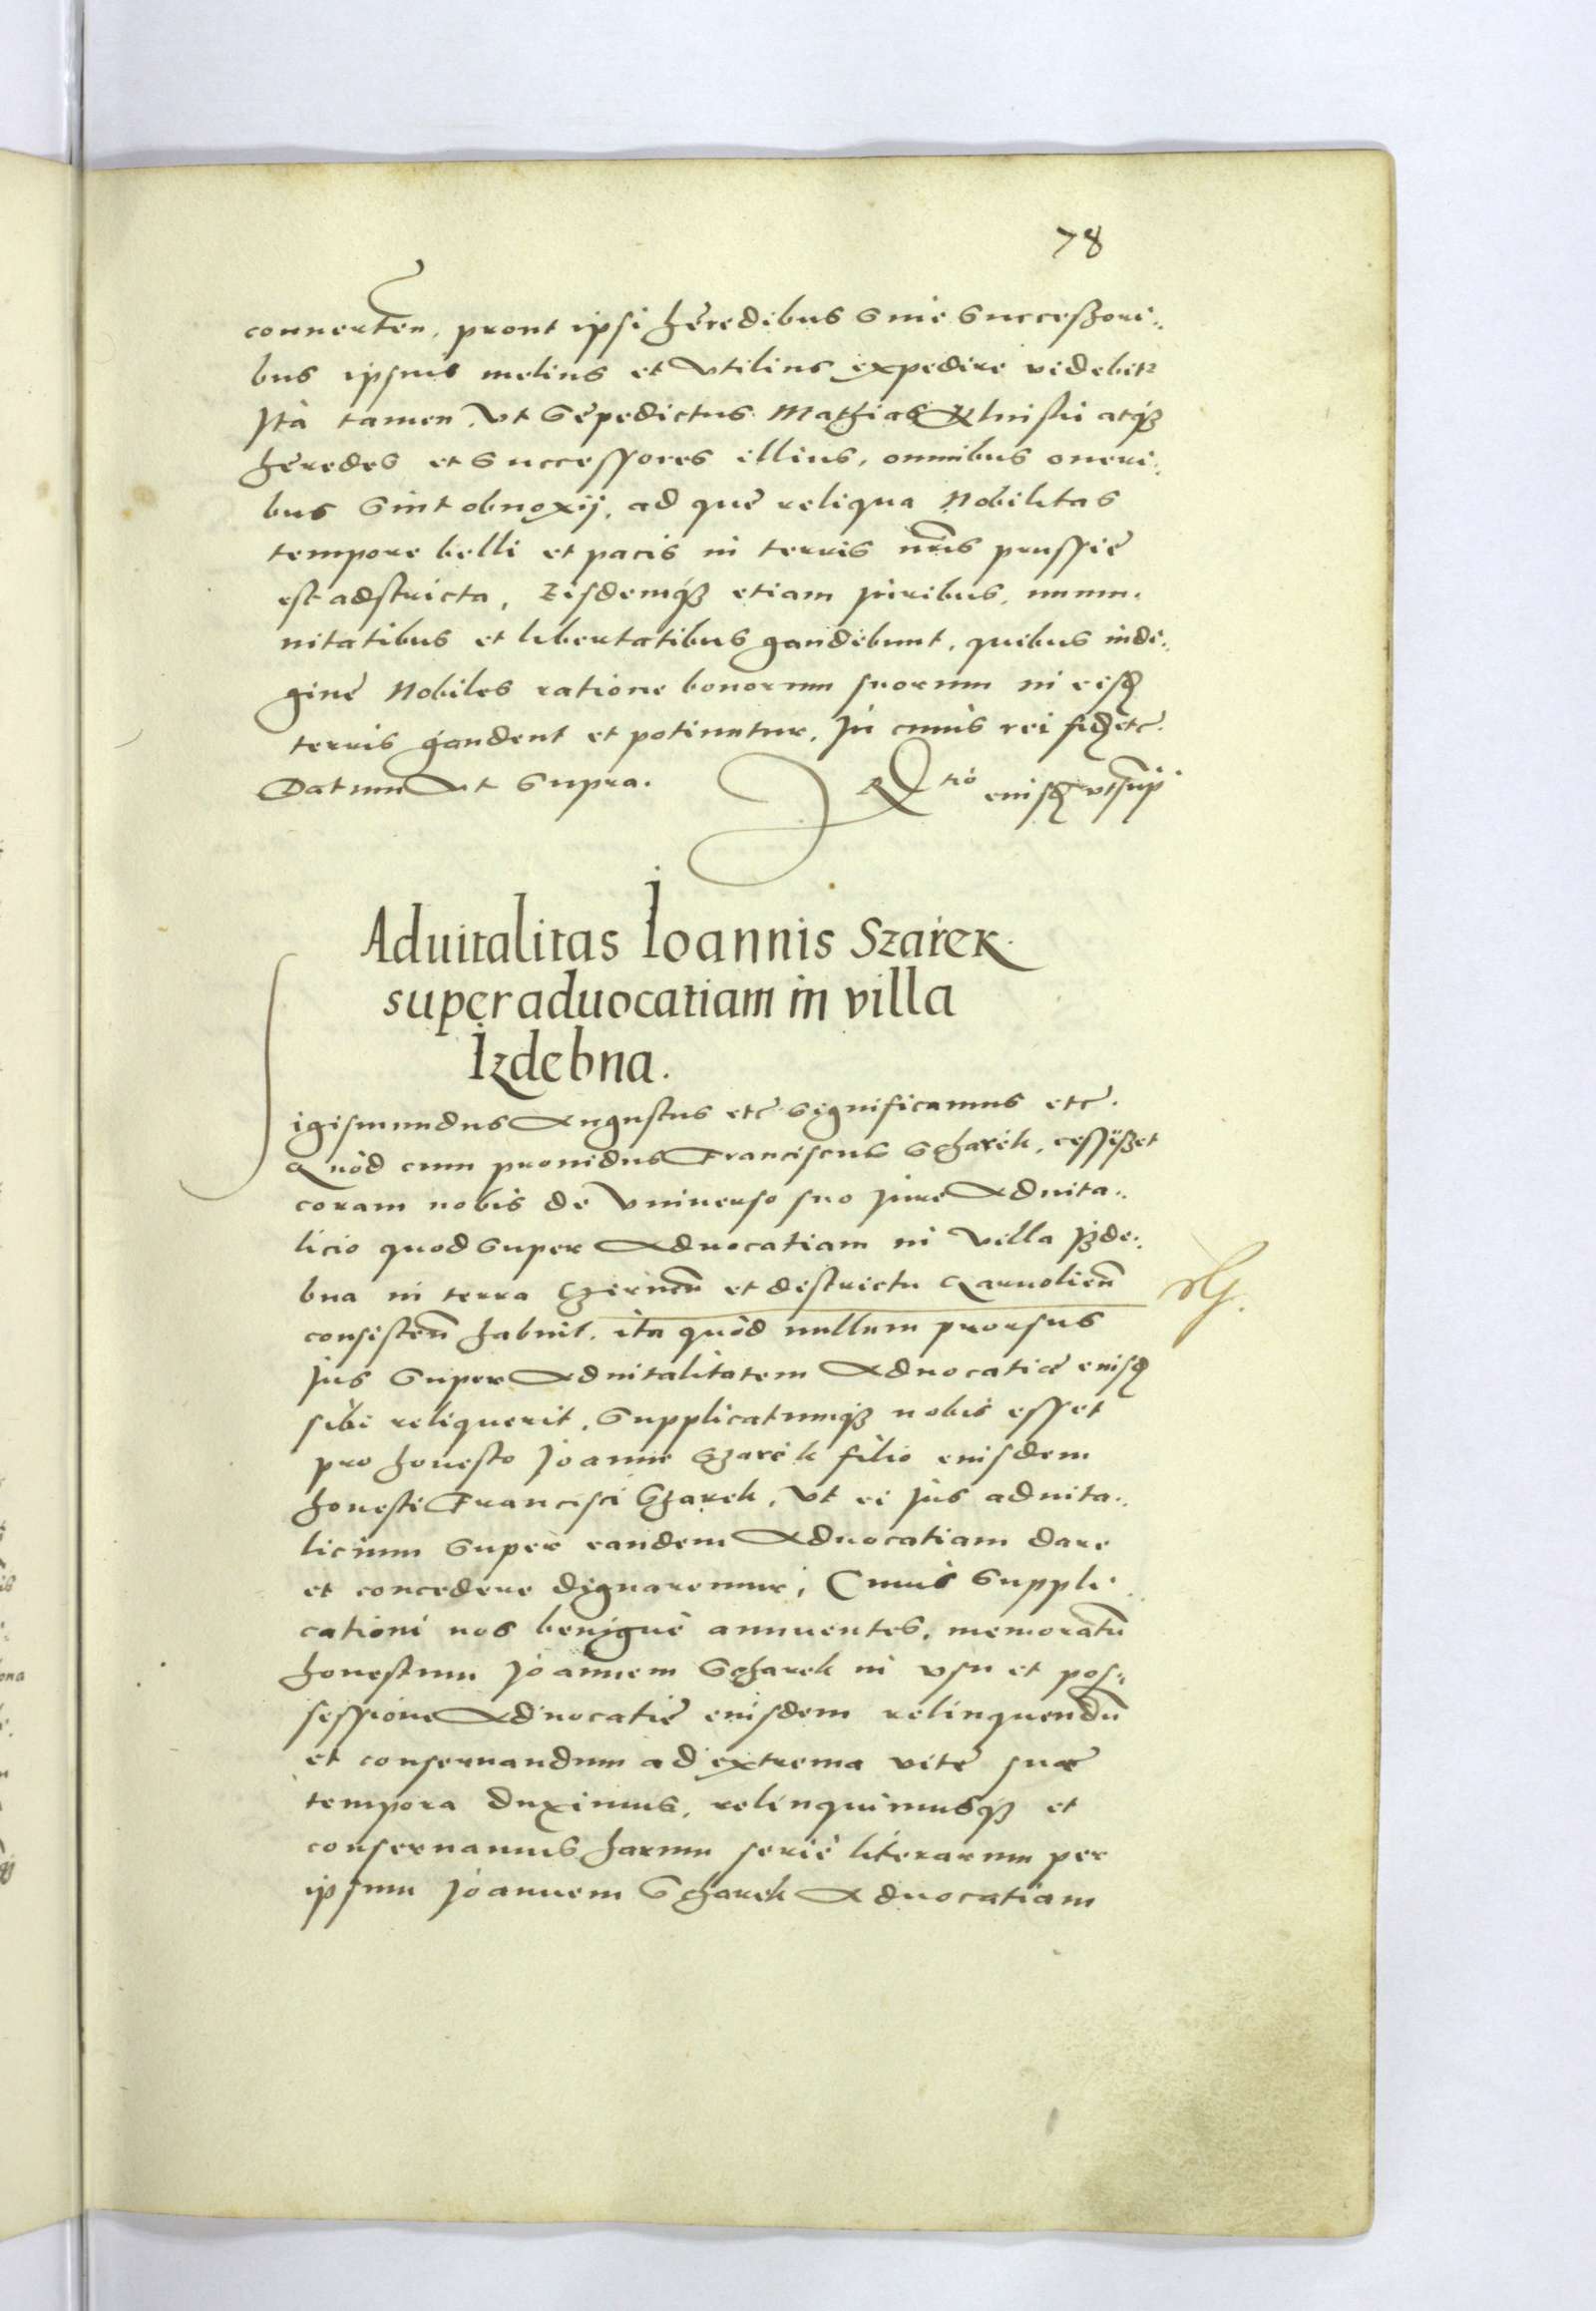 78
conuerten. prout ipsi heredibus siue successori„
bus ipsius melius et vtilius expedire videbitr
Ita tamen, vt sepedictus Mathias Kluiski atqȝ
heredes et successores illius, omnibus oneri„
bus sint obnoxij, ad que reliqua Nobilitas
tempore belli et pacis in terris nris prussie
est adstricta, Eisdemqȝ etiam juribus, immu„
nitatibus et libertatibus gaudebunt, quibus indi„
gine Nobiles ratione bonorum suorum in eisd
terris gaudent et potiuntur, In cuius rei fid etc.
Datum vt supra.
Rtio eiusd vt sup
Aduitalitas Ioannis Szarek
super aduocatiam in villa
Izdebna.
Sigismundus Augustus etc significamus etc.
Quod cum prouidus Franciscus Scharek, cessisset
coram nobis de vniuerso suo jure aduita„
licio quod super aduocatiam in villa Isde„
bna in terra Czernen et districtu Czarnolien
consisten habuit, ita quod nullum prorsus
jus super aduitalitatem aduocatiæ eiusd
sibi reliquerit, supplicatumqȝ nobis esset
pro honesto Joanne Szarek filio eiusdem
honesti Francisci Szarek, vt ei jus aduita„
licium super eandem aduocatiam dare
et concedere dignaremur, Cuius suppli„
cationi nos benigne annuentes, memoratu
honestum Joannem Scharek in vsu et pos„
sessione aduocatie eiusdem relinquendu
et conseruandum ad extrema vite suæ
tempora duximus, relinquimusqȝ et
conseruamus harum serie literarum per
ipsum Joannem Scharek aduocatiam